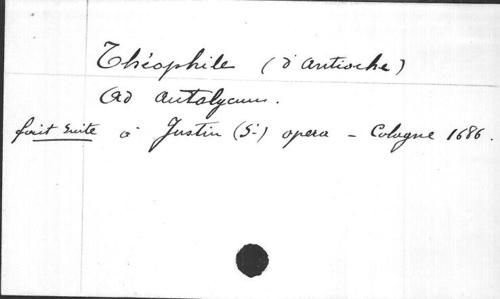 Théophile (d'Antioche)
Ad Autolycum.
fait suite à Justin (St) opera - Cologne 1686.